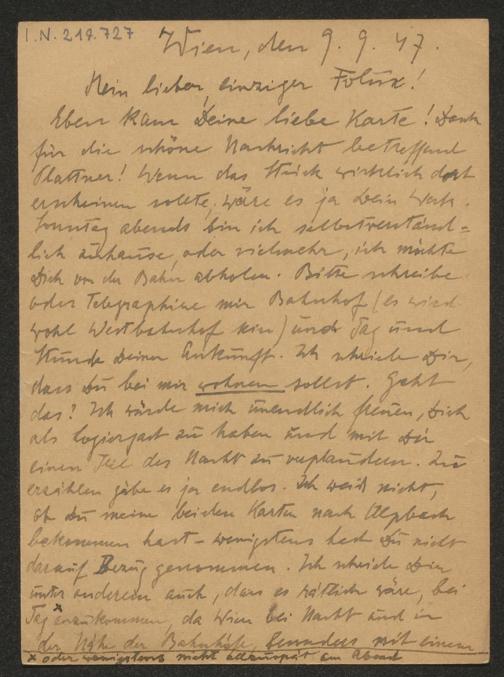 I.N. 219.727
Wien, den 9. 9. 47.
Mein lieber, einziger Felix!
Eben kam Deine liebe Karte! Dank
für die schöne Nachricht betreffend
Plattner! Wenn das Stück wirklich dort
erscheinen sollte, wäre es ja Dein Werk.
Sonntag abends bin ich selbstverständ-
lich zuhause, oder vielmehr, ich möchte
Dich von der Bahn abholen. Bitte schreibe
oder telegraphiere mir Bahnhof (es wird
wohl Westbahnhof sein) und Tag und
Stunde Deiner Ankunft. Ich schrieb Dir,
dass Du bei mir wohnen sollst. Geht
das? Ich würde mich unendlich freuen, Dich
als Logiergast zu haben und mit Dir
einen Teil der Nacht zu verplaudern. Zu
erzählen gäbe es ja endlos. Ich weiß nicht,
ob Du meine beiden Karten nach Alpbach
bekommen hast – wenigstens hast Du nicht
darauf Bezug genommen. Ich schrieb Dir
unter anderem auch, dass es rätlich wäre, bei
Tag x anzukommen, da Wien bei Nacht und in
der Nähe der Bahnhöfe, besonders mit einem
x oder wenigstens nicht allzuspät am Abend